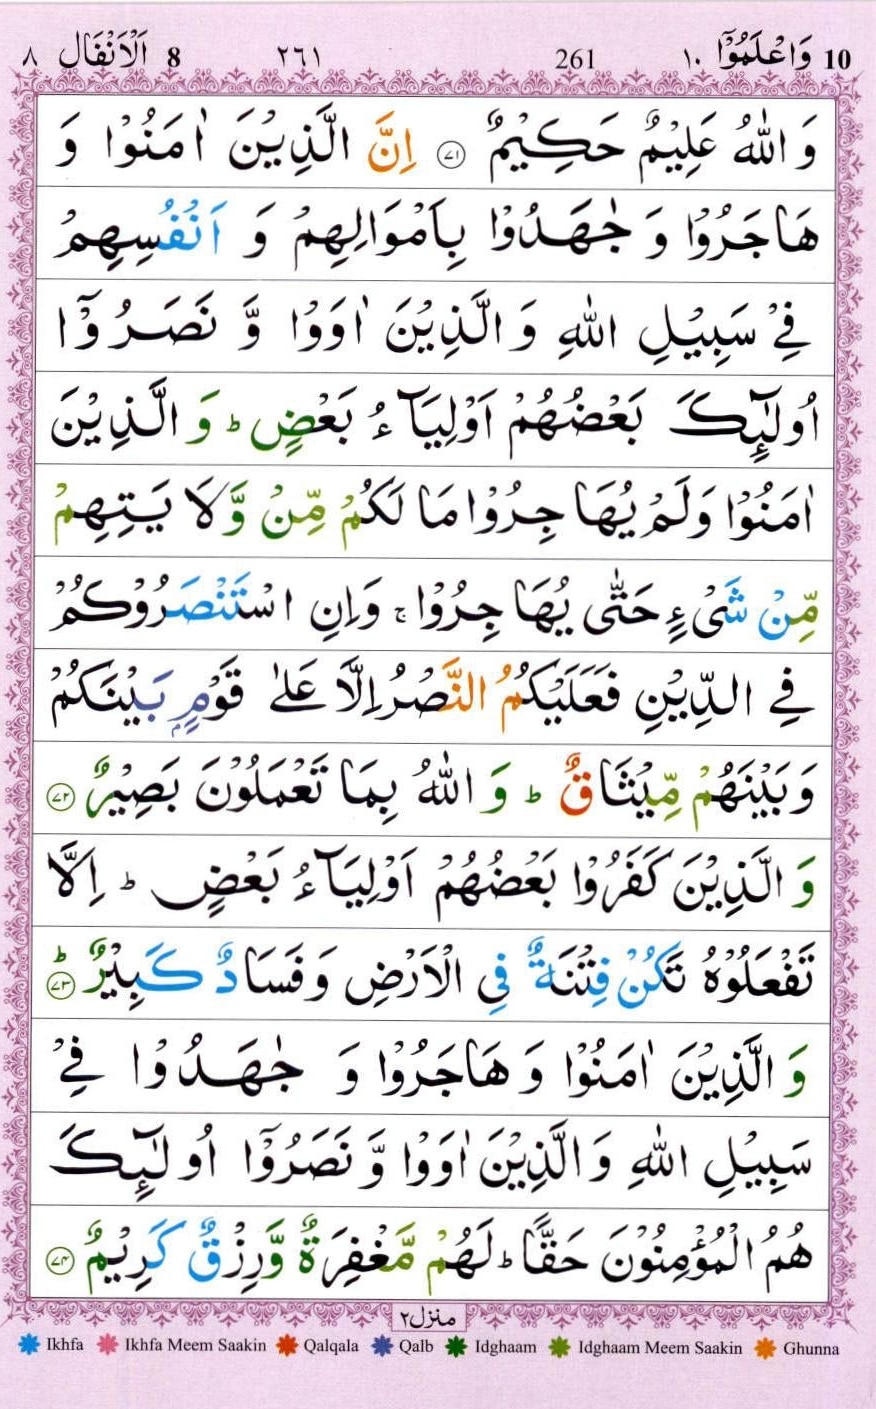 ٨ اَلْاَنْفَال 8 ٢٦١ 261 وَاعْلَمُوْۤا ١٠ 10
وَ اللّٰهُ عَلِيْمٌ حَكِيْمٌ ﴿٧١﴾ اِنَّ الَّذِيْنَ اٰمَنُوْا وَ
هَاجَرُوْا وَ جٰهَدُوْا بِاَمْوَالِهِمْ وَ اَنْفُسِهِمْ
فِيْ سَبِيْلِ اللّٰهِ وَ الَّذِيْنَ اٰوَوْا وَّ نَصَرُوْۤا
اُولٰٓئِكَ بَعْضُهُمْ اَوْلِيَآءُ بَعْضٍ ؕ وَ الَّذِيْنَ
اٰمَنُوْا وَلَمْ يُهَاجِرُوْا مَا لَكُمْ مِّنْ وَّلَايَتِهِمْ
مِّنْ شَيْءٍ حَتّٰى يُهَاجِرُوْا ۚ وَاِنِ اسْتَنْصَرُوْكُمْ
فِي الدِّيْنِ فَعَلَيْكُمُ النَّصْرُ اِلَّا عَلٰى قَوْمٍۭ بَيْنَكُمْ
وَبَيْنَهُمْ مِّيْثَاقٌ ؕ وَ اللّٰهُ بِمَا تَعْمَلُوْنَ بَصِيْرٌ ﴿٧٢﴾
وَ الَّذِيْنَ كَفَرُوْا بَعْضُهُمْ اَوْلِيَآءُ بَعْضٍ ؕ اِلَّا
تَفْعَلُوْهُ تَكُنْ فِتْنَةٌ فِي الْاَرْضِ وَفَسَادٌ كَبِيْرٌ ؕ ﴿٧٣﴾
وَ الَّذِيْنَ اٰمَنُوْا وَ هَاجَرُوْا وَ جٰهَدُوْا فِيْ
سَبِيْلِ اللّٰهِ وَ الَّذِيْنَ اٰوَوْا وَّ نَصَرُوْۤا اُولٰٓئِكَ
هُمُ الْمُؤْمِنُوْنَ حَقًّا ؕ لَهُمْ مَّغْفِرَةٌ وَّرِزْقٌ كَرِيْمٌ ﴿٧٤﴾
منزل٢
Ikhfa Ikhfa Meem Saakin Qalqala Qalb Idghaam Idghaam Meem Saakin Ghunna